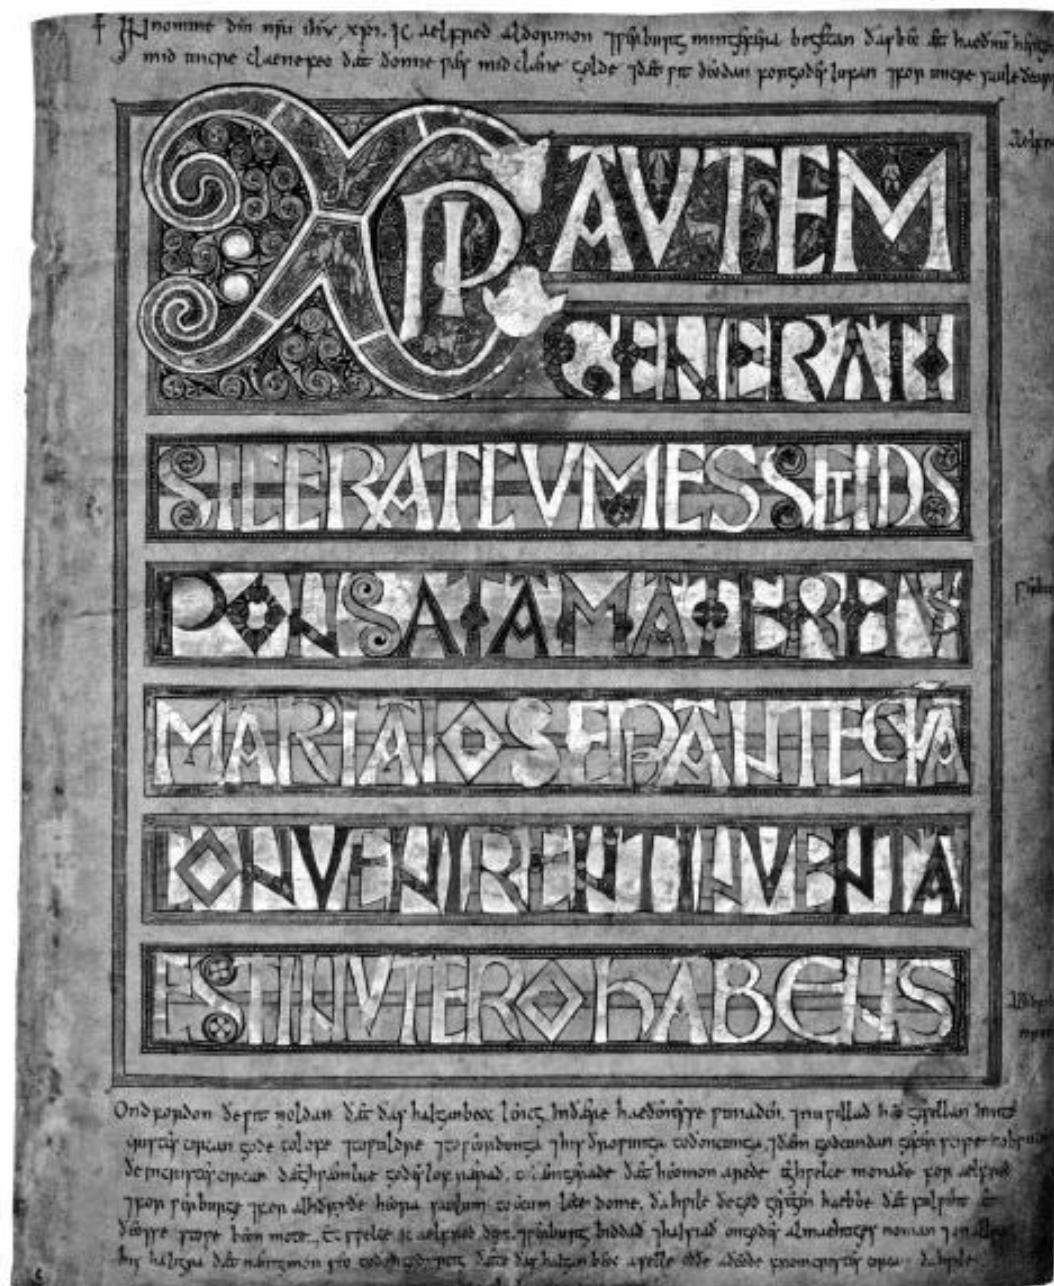 + In nomine dñi nr̄i ihu xp̄i. Ic aelfred aldormon ⁊ werburg min gefera begetan ðas bec æt haeðnum herge
mid uncre claene feo ðæt ðonne wæs mid clæne golde ⁊ ðæt wit deodan for godes lufan ⁊ for uncre saule
XPI AVTEM
GENERATI
SIC ERAT CVM ESSET DS
PONSATA MATER EIVS
MARIA IOSEPH ANTEQVA
CONVENIRENT INVENTA
EST IN VTERO HABENS
Ond forðon ðe wit noldan ðæt ðas halgan beoc lencg in ðære haeðenesse wunaden, ⁊ nu willað heo gesellan inn to
cristes circan gode to lofe ⁊ to wuldre ⁊ to weorðunga ⁊ his ðrowunga to ðoncunga, ⁊ ðæm godcundan geferscipe to
ðe in cristes circan dæghwæmlice godes lof rærað, to ðæm gerade ðæt heo mon arede eghwelce monaðe for aelfred
⁊ for werburge ⁊ for alhðryðe heora saulum to ecum lecedome, ða hwile ðe god gesegen haebbe ðæt fulwiht æt
ðeosse stowe beon mote. Ec swelce ic aelfred dux ⁊ werburg biddað ⁊ halsiað on godes almaehtiges noman ⁊ on allra
his haligra ðæt nænig mon seo to ðon gedyrstig ðætte ðas halgan beoc aselle oððe aðeode from cristes circan ða hwile